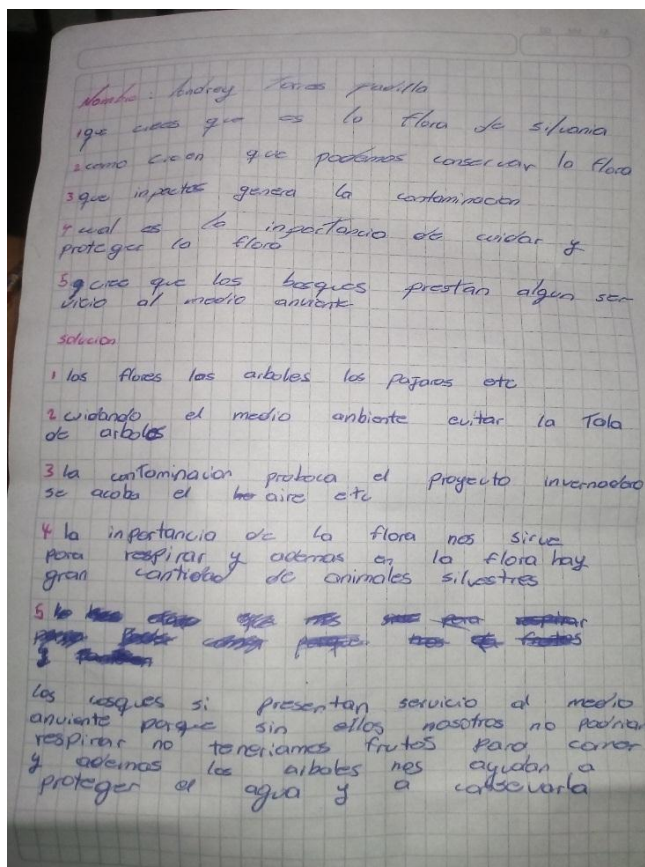 Nombre: Andrey Torres padilla
1 que crees que es la flora de silvania
2 como creen que podemos conservar la flora
3 que inpactos genera la contaminacion
4 cual es la inportancia de cuidar y
proteger la flora
5 q creo que los bosques prestan algun ser-
vicio al medio anviente
solucion
1 las flores los arboles los pajaros etc
2 cuidando el medio anbiente evitar la Tala
de arboles
3 la contaminacion proboca el proyecto invernadero
se acaba el aire etc
4 la inportancia de la flora nos sirve
para respirar y ademas en la flora hay
gran cantidad de animales silvestres
5
los vosques si presentan servicio al medio
anviente porque sin ellos nosotros no podriar
respirar no teneriamos frutos para comer
y ademas los arboles nos ayudan a
proteger el agua y a